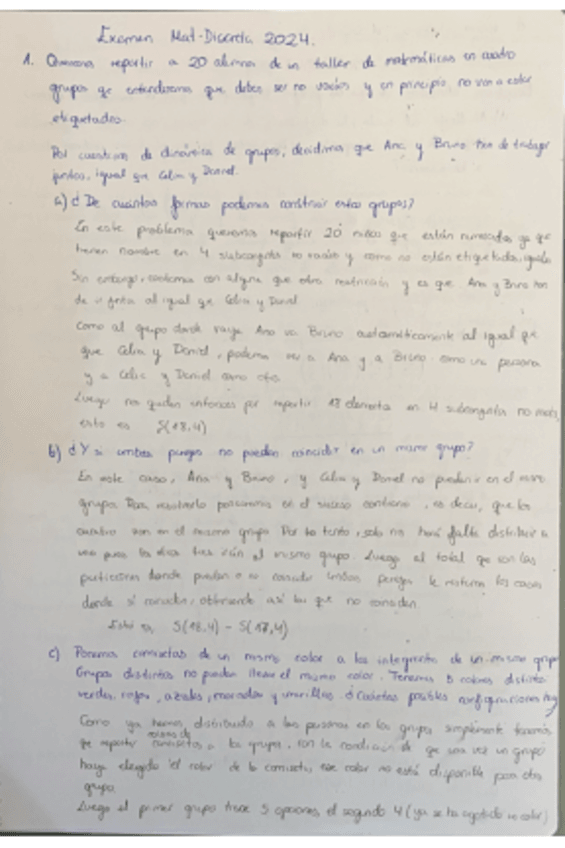 Examen Mat-Discreta 2024.
1. Queremos repartir a 20 alumnos de un taller de matemáticas en cuatro
grupos que entendemos que deben ser no vacíos y en principio, no van a estar
etiquetados.
Por cuestiones de dinámica de grupos, decidimos que Ana y Bruno han de trabajar
juntos, igual que Celia y Daniel.
a) ¿De cuántas formas podemos construir estos grupos?
En este problema queremos repartir 20 que están numeradas ya que
tienen nombre en 4 subconjuntos no vacíos y como no están etiquetados,
Sin embargo, contamos con alguna que otra restricción y es que Ana y Bruno han
de ir juntos al igual que Celia y Daniel
Como al grupo donde vaya Ana va Bruno automáticamente al igual que
que Celia y Daniel, podemos ver a Ana y a Bruno como una persona
y a Celia y Daniel como otra.
Luego nos quedan entonces por repartir 18 elementos en 4 subconjuntos no vacíos,
esto es S(18,4)
b) ¿Y si ambas parejas no pueden coincidir en un mismo grupo?
En este caso, Ana y Bruno, y Celia y Daniel no pueden ir en el mismo
grupo. Para resolverlo pensaremos en el suceso contrario, es decir, que los
cuatro van en el mismo grupo. Por lo tanto, solo nos hará falta distribuir a
uno pues los otros tres irán al mismo grupo. Luego al total que son las
particiones donde puedan o no coincidir ambas parejas le restamos los casos
donde sí coinciden, obteniendo así los que no coinciden
Esto es, S(18,4) - S(17,4)
c) Ponemos camisetas de un mismo color a los integrantes de un mismo grupo
Grupos distintos no pueden llevar el mismo color. Tenemos 5 colores distintos
verdes, rojas, azules, moradas y amarillas. ¿Cuántas posibles configuraciones hay
Como ya hemos distribuido a las personas en los grupos simplemente tenemos
que repartir colores de camisetas a los grupos, con la condición de que una vez un grupo
haya elegido el color de la camiseta, ese color no está disponible para otro
grupo.
Luego el primer grupo tiene 5 opciones, el segundo 4 (ya se ha cogido un color)